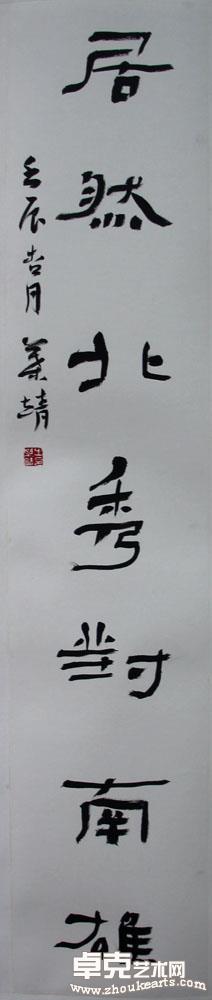 居然北秀對南雄
壬辰杏月 葉靖
卓克艺术网
www.zhoukearts.com